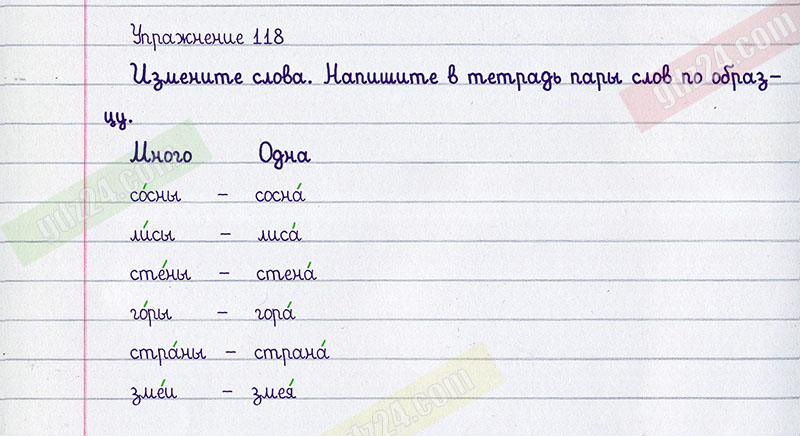 Упражнение 118
Измените слова. Напишите в тетрадь пары слов по образ-
цу.
Много Одна
со́сны – сосна́
ли́сы – лиса́
сте́ны – стена́
го́ры – гора́
стра́ны – страна́
зме́и – змея́
gdz24.com
gdz24.com
gdz24.com